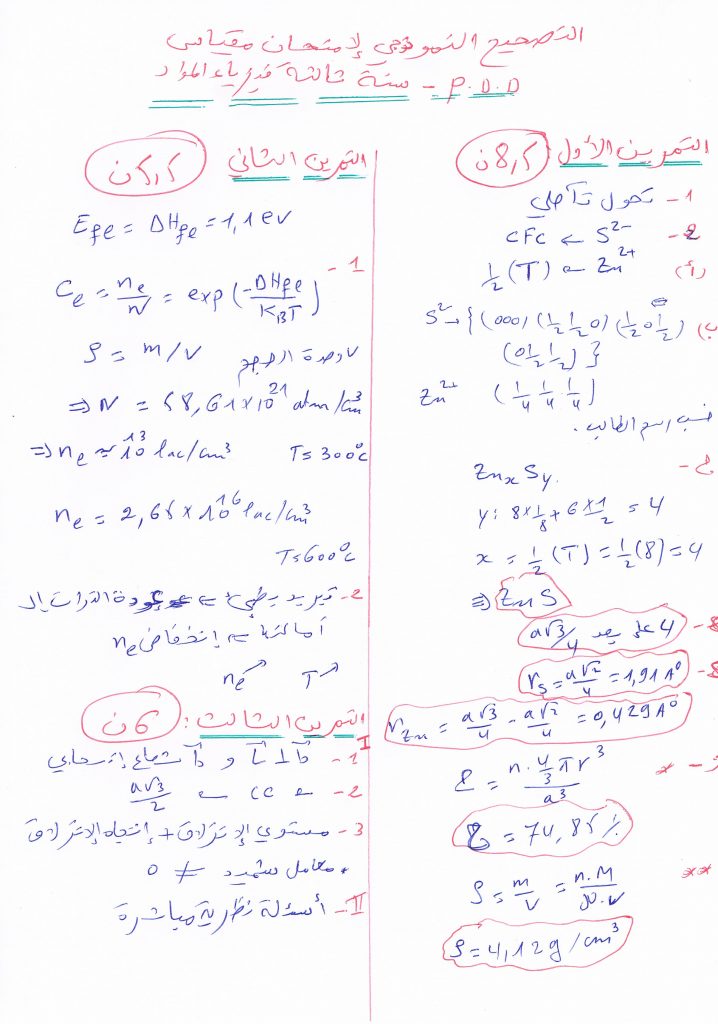 التصحيح النموذجي لإمتحان مقياس
P.D.D - سنة ثالثة فيزياء المواد
التمرين الأول 8,5ن
1- تحول تآصلي
2- S²⁻ → CFC
أ) Zn²⁺ → ½(T)
ب) S²⁻ → {(000) (½ ½ 0) (½ 0 ½)
(0 ½ ½)}
Zn²⁺ (¼ ¼ ¼)
حسب رسم الطالب.
ج- ZnₓSy
y: 8×1/8 + 6×1/2 = 4
x = ½(T) = ½(8) = 4
⇒ ZnS
4 على بعد a√3/4
r_S = a√2/4 = 1,91 A°
r_Zn = a√3/4 - a√2/4 = 0,429 A°
* ξ = n.4/3 πr³ / a³
ξ = 74,85 %
** ρ = m/v = n.M/N.v
ρ = 4,12 g/cm³
التمرين الثاني 5,5ن
E_fe = ΔH_fe = 1,1 ev
1-
C_e = n_e/N = exp(-ΔH_fe/K_BT)
ρ = m/V وحدة الحجم
⇒ N = 58,61×10²¹ atm/cm³
⇒ n_e ≈ 10¹³ lac/cm³ T=300°c
n_e = 2,65×10¹⁶ lac/cm³
T=600°c
2- تبريد بطيء ⇐ عودة الذرات إلى
أماكنها ⇐ إنخفاض n_e
n_e↗ T↗
التمرين الثالث: 6ن
I
1- و إشعاع
2- CC ⇐ a√3/2
3- مستوي الإنزلاق + إتجاه الإنزلاق
• معامل شميد ≠ 0
II- أسئلة نظرية مباشرة